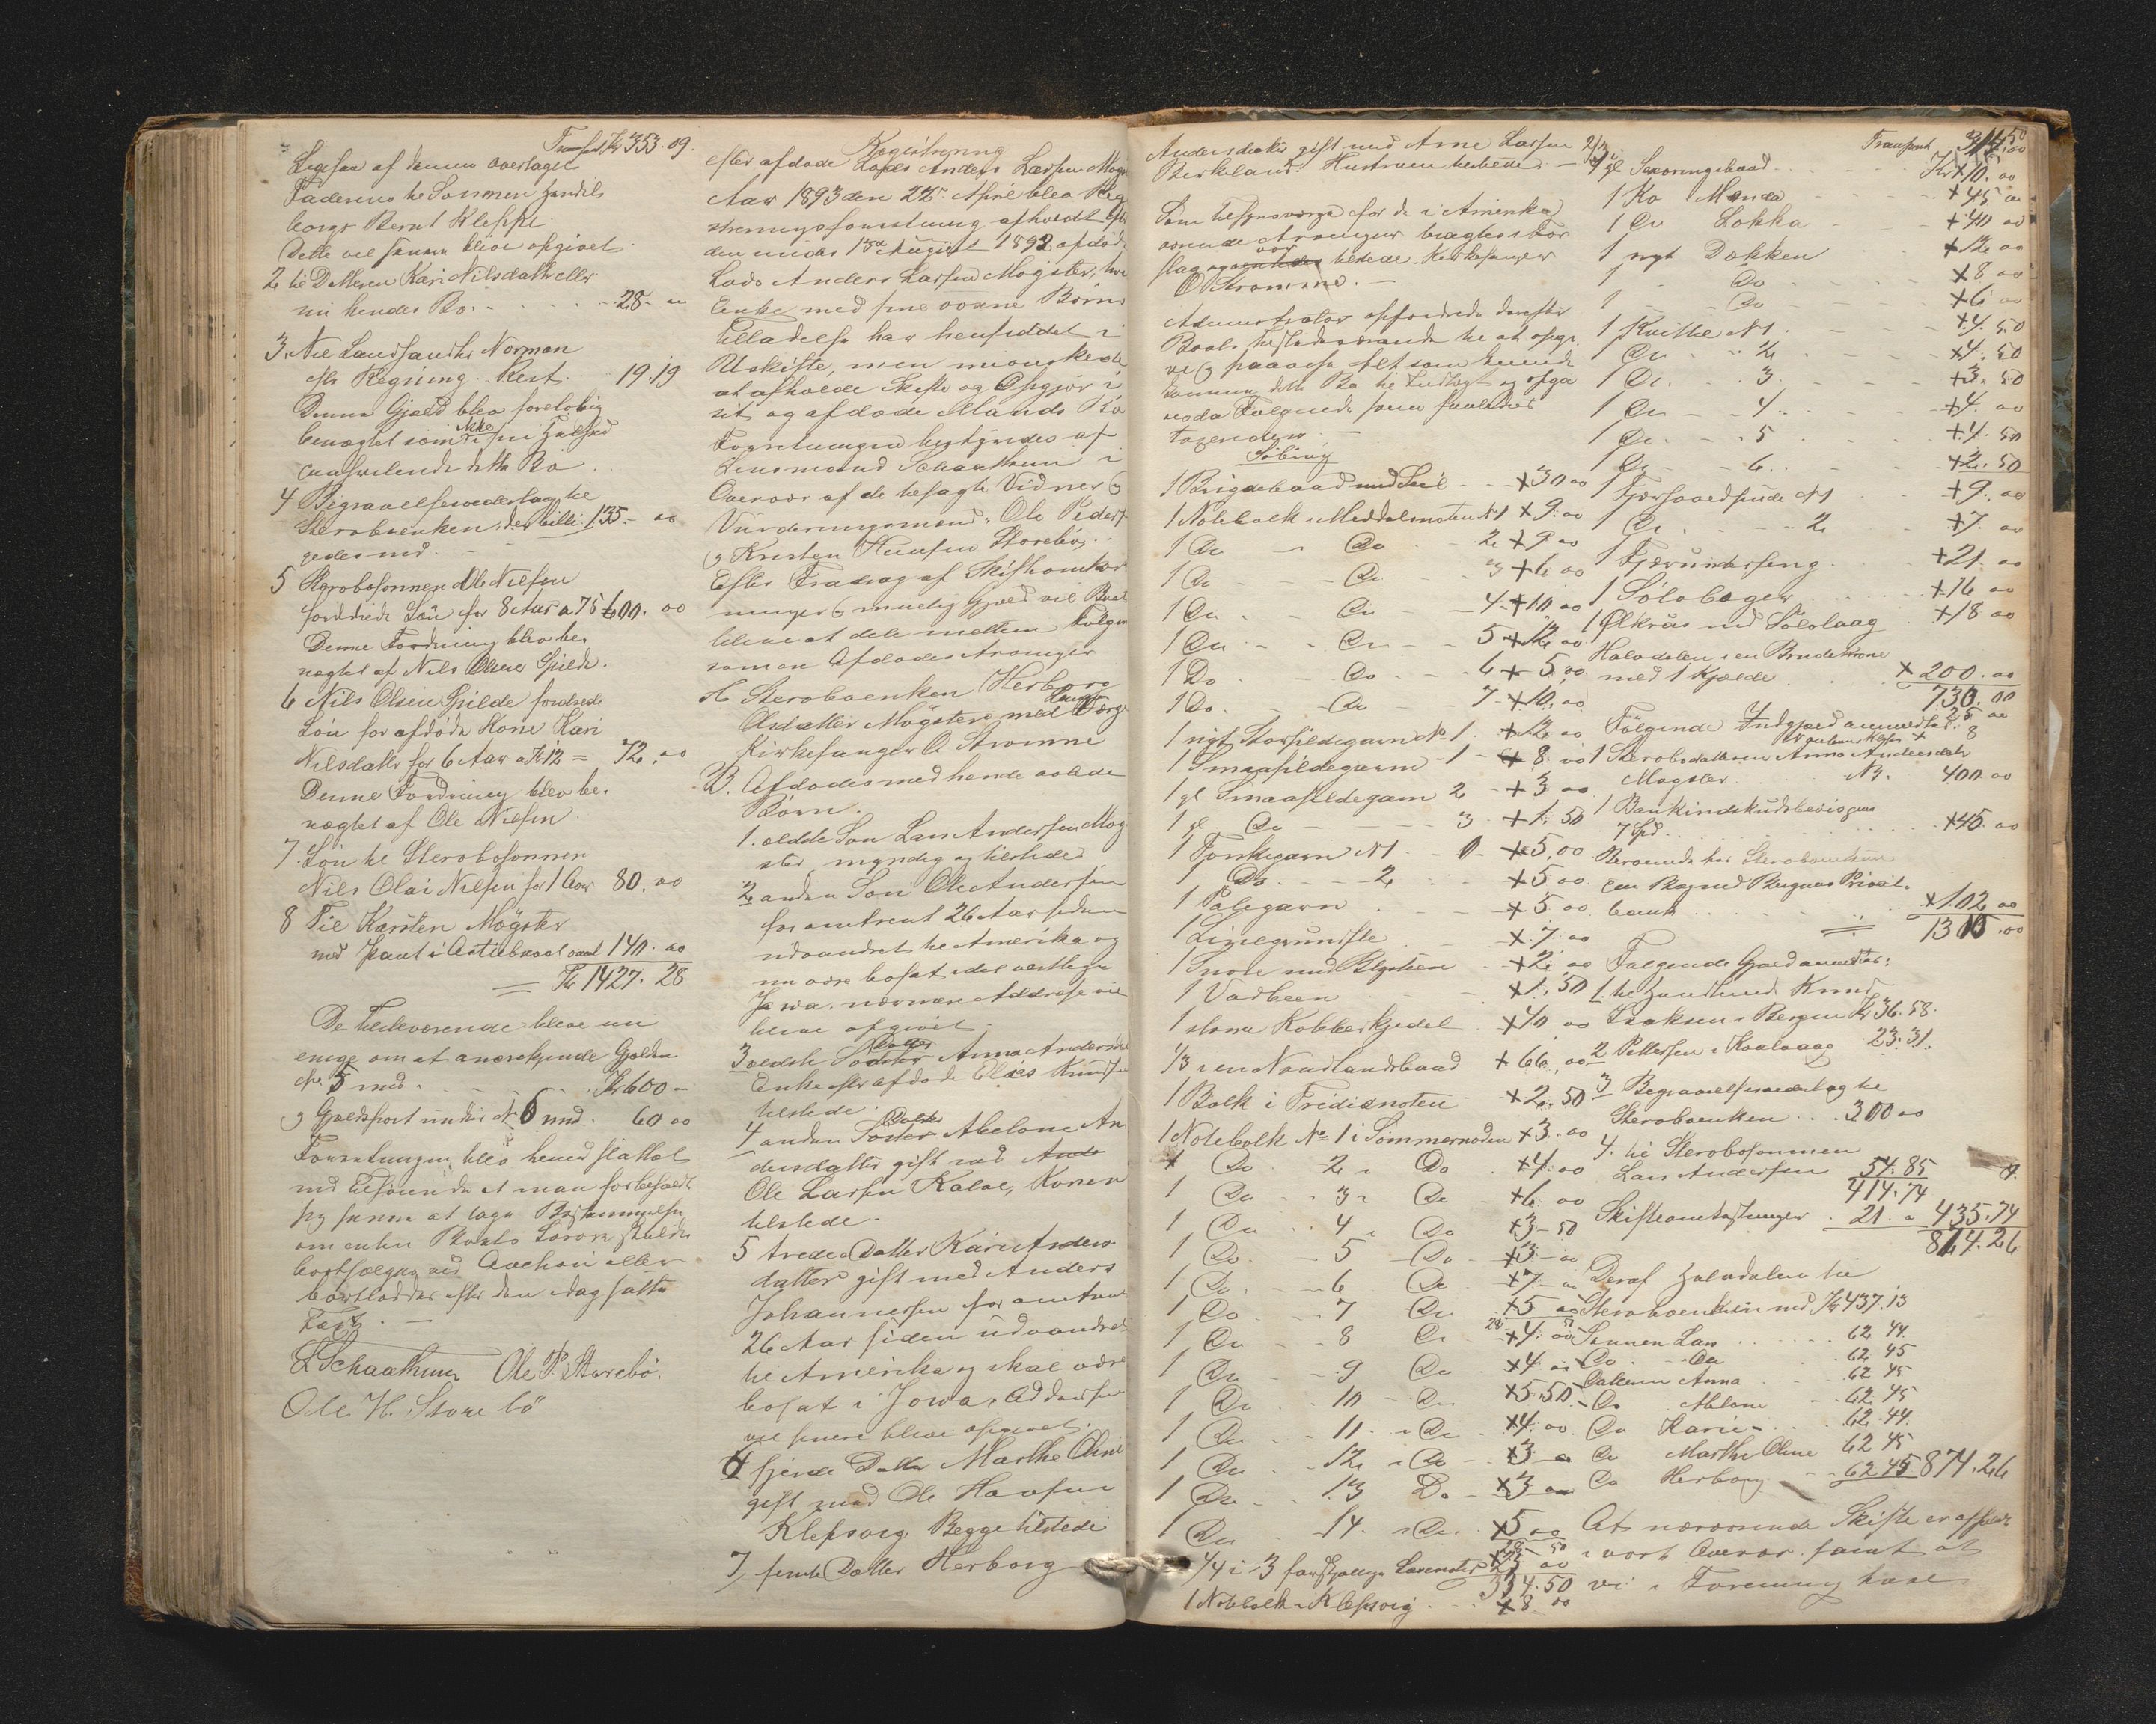 Transport Kr 353.09.
Ligesaa af denne overtaget
Faderens til Sønnen Handels
borger Bernt Kleppe.
Dette vil senere blive opgivet.
2 til Datteren Kari Nilsdatter eller
nu hendes Bo. - - - 28 - 00
3. Til Landhandler Norman
efter Regning. Rest. 19.19
Denne Gjæld blev foreløbig
benægtet som ikke
vedkommende dette Bo.
4 Begravelsesvederlag til
Sterboenken, der billi- 135.- 00
gedes med.
5 Sterbosønnen Ole Nilsen
fordrede Løn for 8 Aar a 75 600. 00
Denne Fordring blev be-
nægtet af Nils Olsen Gjilde.
6 Nils Olsen Gjilde fordrede
Løn for afdøde Kone Kari
Nilsdatter for 6 Aar a Kr 12 = 72,00
Denne Fordring blev be-
nægtet af Ole Nilsen.
7. Løn til Sterbosønnen
Nils Olai Nilsen for 1 Aar 80.00
8 Til Karsten Møgster
med Pant i 140.00
= Kr 1427.28
De tilstedeværende bleve nu
enige om at anerkjende Gjælden
No 5 med. Kr 600 -
og Gjældspost under No 6 med. 60 00
Forretningen blev hermed sluttet
med Tilføiende at man forbeholdt
sig senere at tage Bestemmelse
om enten Boets Løsøre skulde
bortsælges ved Auction eller
bortloddes efter den idag satte
Taxt. —
L Schaathun Ole P. Storebø.
Ole H. Storebø
Registrering
efter afdøde Lods Anders Larsen Møgster
Aar 1893 den 22de April blev Regi-
streringsforretning afholdt efter
den under 1ste August 1892 afdøde
Lods Anders Larsen Møgster, hvis
Enke med sine voxne Børns
Tilladelse har hensiddet i
Uskifte, men nu ønskede
at afholde Skifte og Opgjør i
sit og afdøde Mands Bo
Forretningen bestyredes af
Lensmand Schaathun i
Overvær af de tilsagte Vidner og
Vurderingsmænd: Ole Peders.
og Kristen Hansen Storebø.
Efter Fradrag af Skifteomkost-
ninger og muelig Gjæld vil Boet
blive at dele mellem Følgende
som er Afdødes Arvinger
A Sterboenken Herborg
Olsdatter Møgster med Laugværge
Kirkesanger O Strømme
B. Afdødes med hende avlede
Børn.
1. ældste Søn Lars Andersen Møg-
ster myndig og tilstede
2 anden Søn Ole Andersen
for omtrent 26 Aar siden
udvandret til Amerika og
nu være bosat i det vestlige
Jowa. nærmere Addresse vil
blive opgivet
3 ældste Datter Anna Andersd.
Enke efter afdøde Elias Knudsen
tilstede.
4 anden Datter Abelone An-
dersdatter gift med
Ole Larsen Kalve, Konen
tilstede.
5 tredie Datter Kari Anders-
datter gift med Anders
Johannessen for omtrent
26 Aar siden udvandret
til Amerika og skal være
bosat i Jowa, Addressen
vil senere blive opgivet.
6 fjerde Datter Marthe Oline
gift med Ole Hansen
Klepsvig Begge tilstede
7, femte Datter Herborg
Andersdatter gift med Arne Larsen
Birkeland. Hustruen tilstede. —
Som tilsynsværge for de i Amerika
værende Arvinger bragtes i For-
slag og var tilstede Kirkesanger
O Strømme. —
Administrator opfordrede derefter
Boets Tilstedeværende til at opgi-
ve og paavise alt som henrede
komme dette Bo til Indtægt og opga-
ves da Følgende som saaledes
taxeredes: —
Løsøre
1 Bryggebaad med Seil - - +30 00
1 Notebolk i Meddelsnoten N 1 +9. 00
1 Do - Do - 2 +9 00
1 Do - - Do 3 +6 00
1 Do - Do - 4 +10 00
1 Do - - Do - 5 +12 00
1 Do - Do - 6 + 5.00
1 Do. - Do - 7 +10.00
1 nyt Storsildegarn No 1. +12 00
1 Smaasildegarn - 1 - + 8 00
1 gl Smaasildegarn 2 - +3 00
1 gl Do - 3 +1.50
1 Torskegarn N 1 +5,00
1 Do - 2 +5 00
1 Palegarn +5 00
1 Linegrundsle +7 00
1 Snøre med Blysteen +2 00
1 Vadbeen +1,50
1 større Kobberkjedel +40 00
1/3 i en Nordlandsbaad +66,00
1 Bolk i Fredienoten +2.50
1 Notebolk No 1 i Sommernoden +3.00
1 Do 2 i Do +4.00
1 Do 3 i Do +6 00
1 Do 4 i Do +3-50
1 Do. 5 Do +3 - 00
1 Do. 6 Do +7 - 00
1 Do 7 Do +5 00
1 Do 8 Do +4. 00
1 Do 9 Do +4 00
1 Do 10 Do +5.50
1 Do 11 i Do +4.00
1 Do 12 i Do +3 00
1 Do 13 Do +3 00
1 Do 14. i Do. +5 00
1/4 i 3 forskjellige
334.50
1 Notebolk i Klepsvig +8 00
Transport
1 gl Sexøringsbaad Kr +10.00
1 Ko Manda +45 00
1 Do Lokka +40 00
1 nyt Dækken +12 00
1 Do +8 00
1 - Do +6 00
1 Kvittel N 1 +4.50
1 Do 2 +4.50
1 Do. 3 +3.50
1 Do 4 +4. 00
1 Do. 5 +4.50
1 Do 6 +2.50
1 Fjærhovedpude N 1 +9.00
1 Do. 2 +7.00
1 Fjærunderseng +21.00
1 Sølvbæger +16 00
1 Ølkrus med Sølvlaag +18 00
Halvdelen i en Brudekrone
med 1 Kjæde +200.00
730.00
Følgende Indgjæld anmeldtes: 25 00
1 Sterbodatteren Anna Andersdatter
Møgster Kr. 400.00
1 Bankindskudsbevis paa
7 Spd. +45.00
Beroende hos Sterboenken
en Bog ved Bergens Privat-
bank +102 00
1310.00
Følgende Gjæld anmeldtes:
1. til Handlende Knud
Isaksen i Bergen Kr 36.58.
2 Pettersen i Kvalvaag 23.31.
3 Begravelsesvederlag til
Sterboenken . . . 300 00
4. til Sterbosønnen
Lars Andersen 54.85
414.74
Skifteomkostninger 21.00 435.74
874.26
Deraf Halvdelen til
Sterboenken med Kr 437.13
Sønnen Lars 62 44.
Do Ole 62 45
Datteren Anna 62 45
Do Abelone 62.45
Do Kari - 62.44.
Do Marthe Oline 62 45
Do Herborg 62 45 874.26
At nærværende Skifte er afholdt
i vort Overvær samt at
vi i Forening have